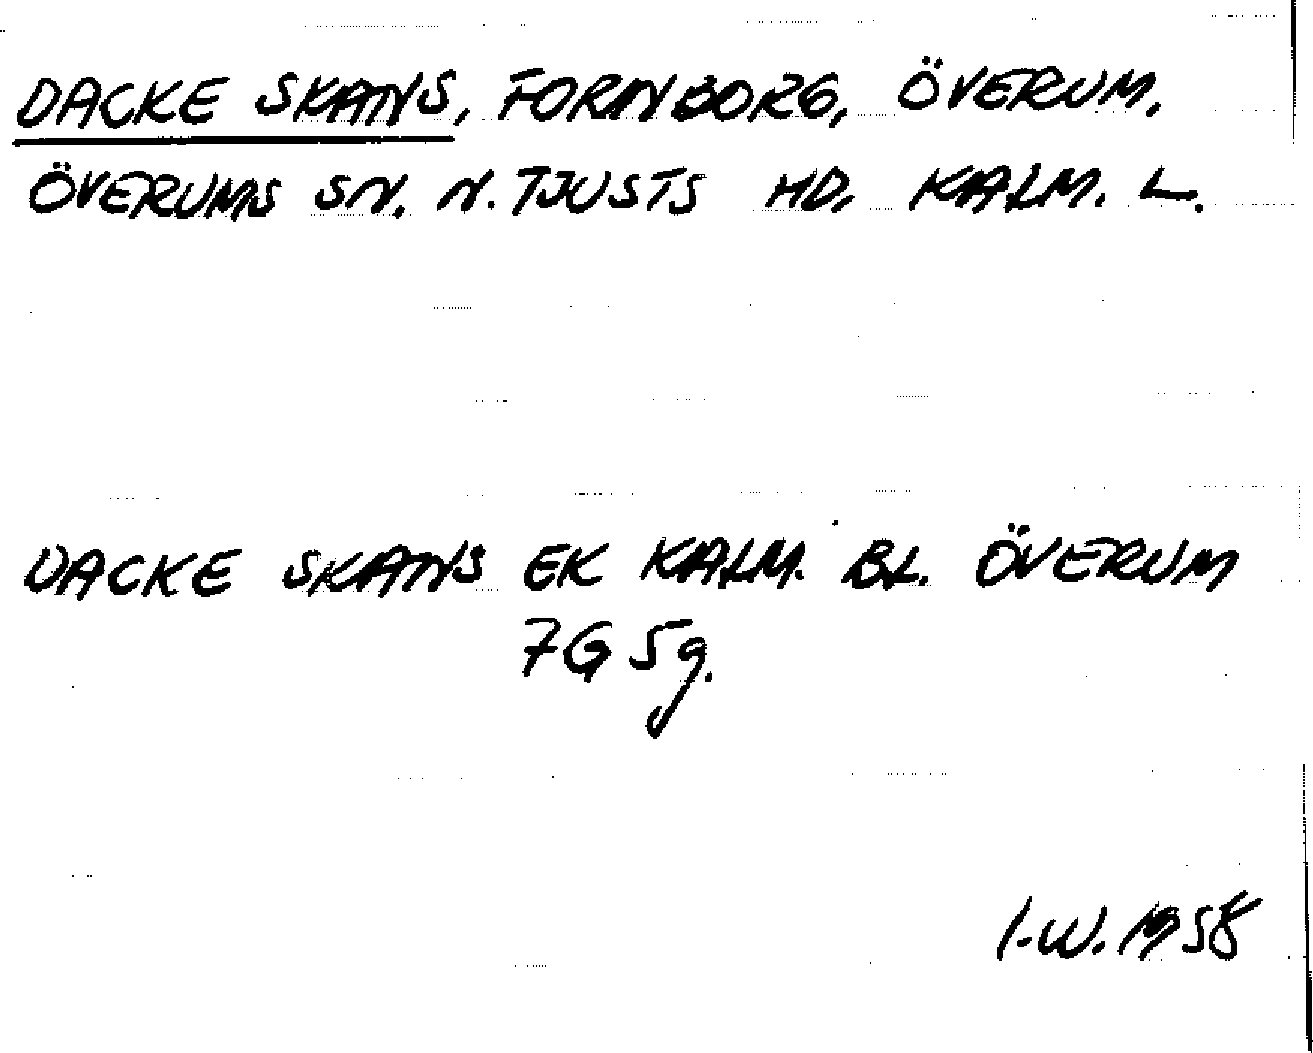 DACKE SKANS, FORNBORG, ÖVERUM,
ÖVERUMS SN. N. TJUSTS HD, KALM. L.
DACKE SKANS EK KALM. BL. ÖVERUM
7G5g.
I.W. 1958